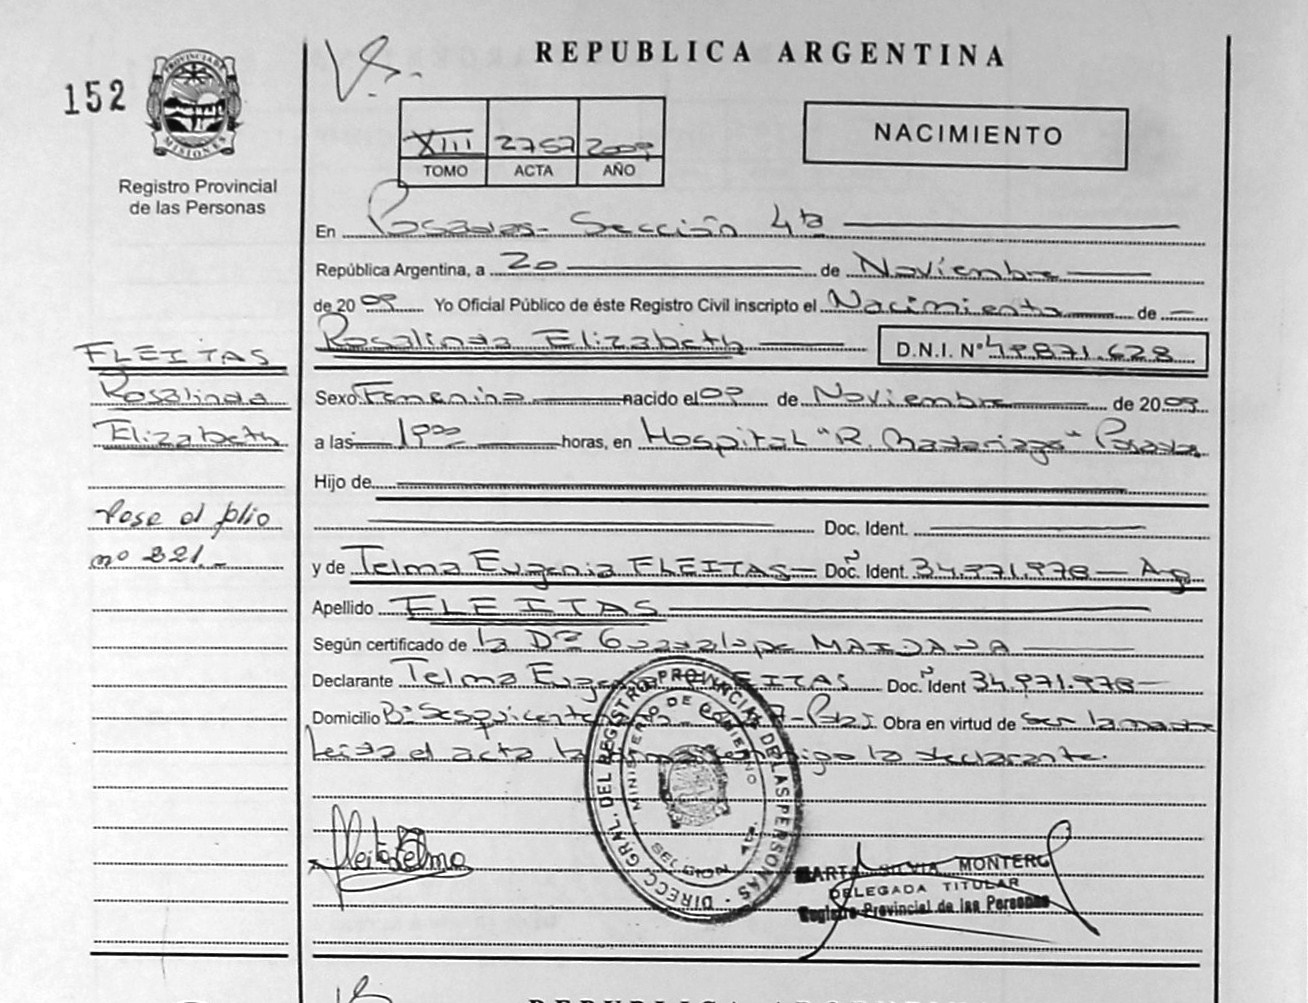 REPUBLICA ARGENTINA
152
PROVINCIA DE MISIONES
Registro Provincial
de las Personas
XIII 2757 2009
TOMO ACTA AÑO
NACIMIENTO
En Posadas - Sección 4ta
República Argentina, a 20 de Noviembre
de 2009 Yo Oficial Público de éste Registro Civil inscripto el Nacimiento de
Rosalinda Elizabeth D.N.I. Nº 49.871.628
FLEITAS
Rosalinda
Elizabeth
Pase al folio
nº 221.-
Sexo Femenino nacido el 09 de Noviembre de 2009
a las horas, en Hospital "R. Madariaga" Posadas
Hijo de
Doc. Ident.
y de Telma Eugenia FLEITAS Doc. Ident. 34.971.978 Ag
Apellido FLEITAS
Según certificado de la Dra Guadalupe MAIDANA
Declarante Telma Eugenia FLEITAS Doc. Ident 34.971.978
Domicilio Bº Sesquicentenario Obra en virtud de ser la madre
Leída el acta la firma conmigo la declarante.
DIRECC. GRAL. DEL REGISTRO PROVINCIAL DE LAS PERSONAS
MINISTERIO DE GOBIERNO
Fleita Telma
MARTA SILVIA MONTERO
DELEGADA TITULAR
Registro Provincial de las Personas
REPUBLICA ARGENTINA